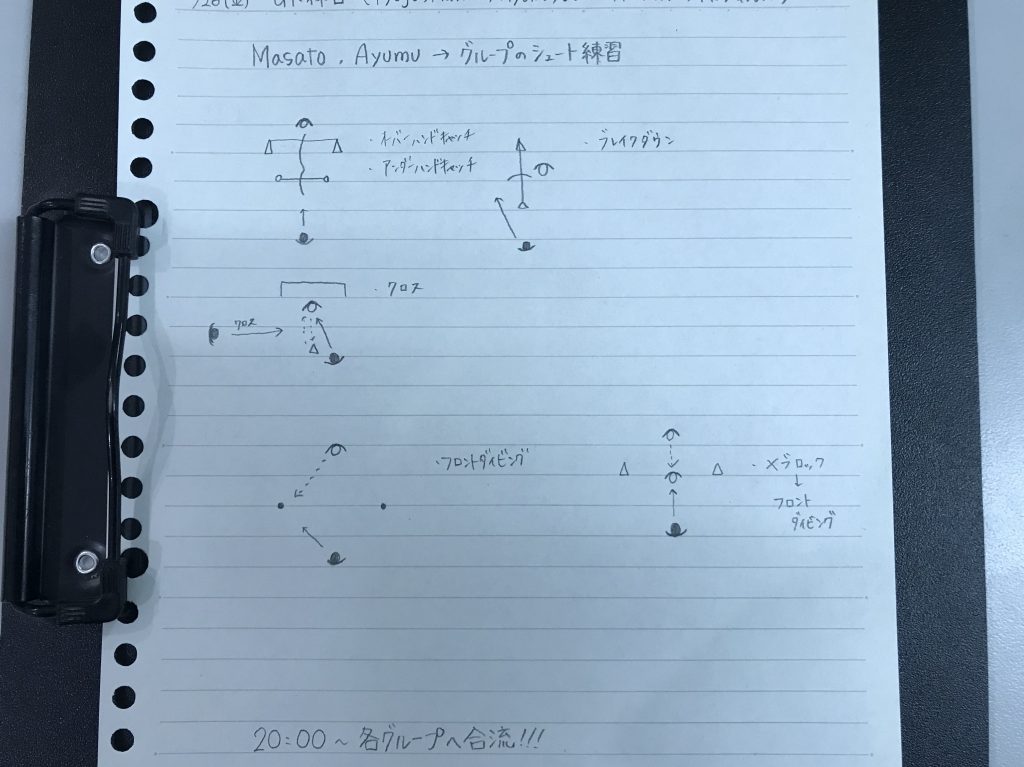 Masato, Ayumu → グループのシュート練習
・オーバーハンドキャッチ
・アンダーハンドキャッチ
・ブレイクダウン
・クロス
クロス
・フロントダイビング
・Xブロック
↓
フロント
ダイビング
20:00~ 各グループへ合流!!!